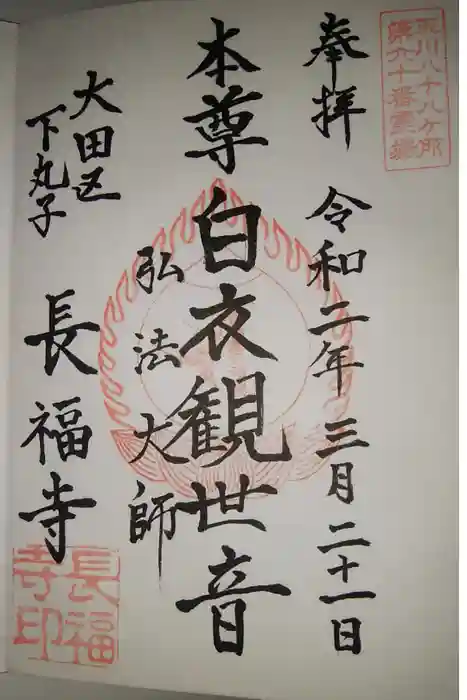 玉川八十八ケ所
第六十番霊場
奉拝 令和二年三月二十一日
本尊白衣観世音
弘法大師
大田区
下丸子
長福寺
長福
寺印